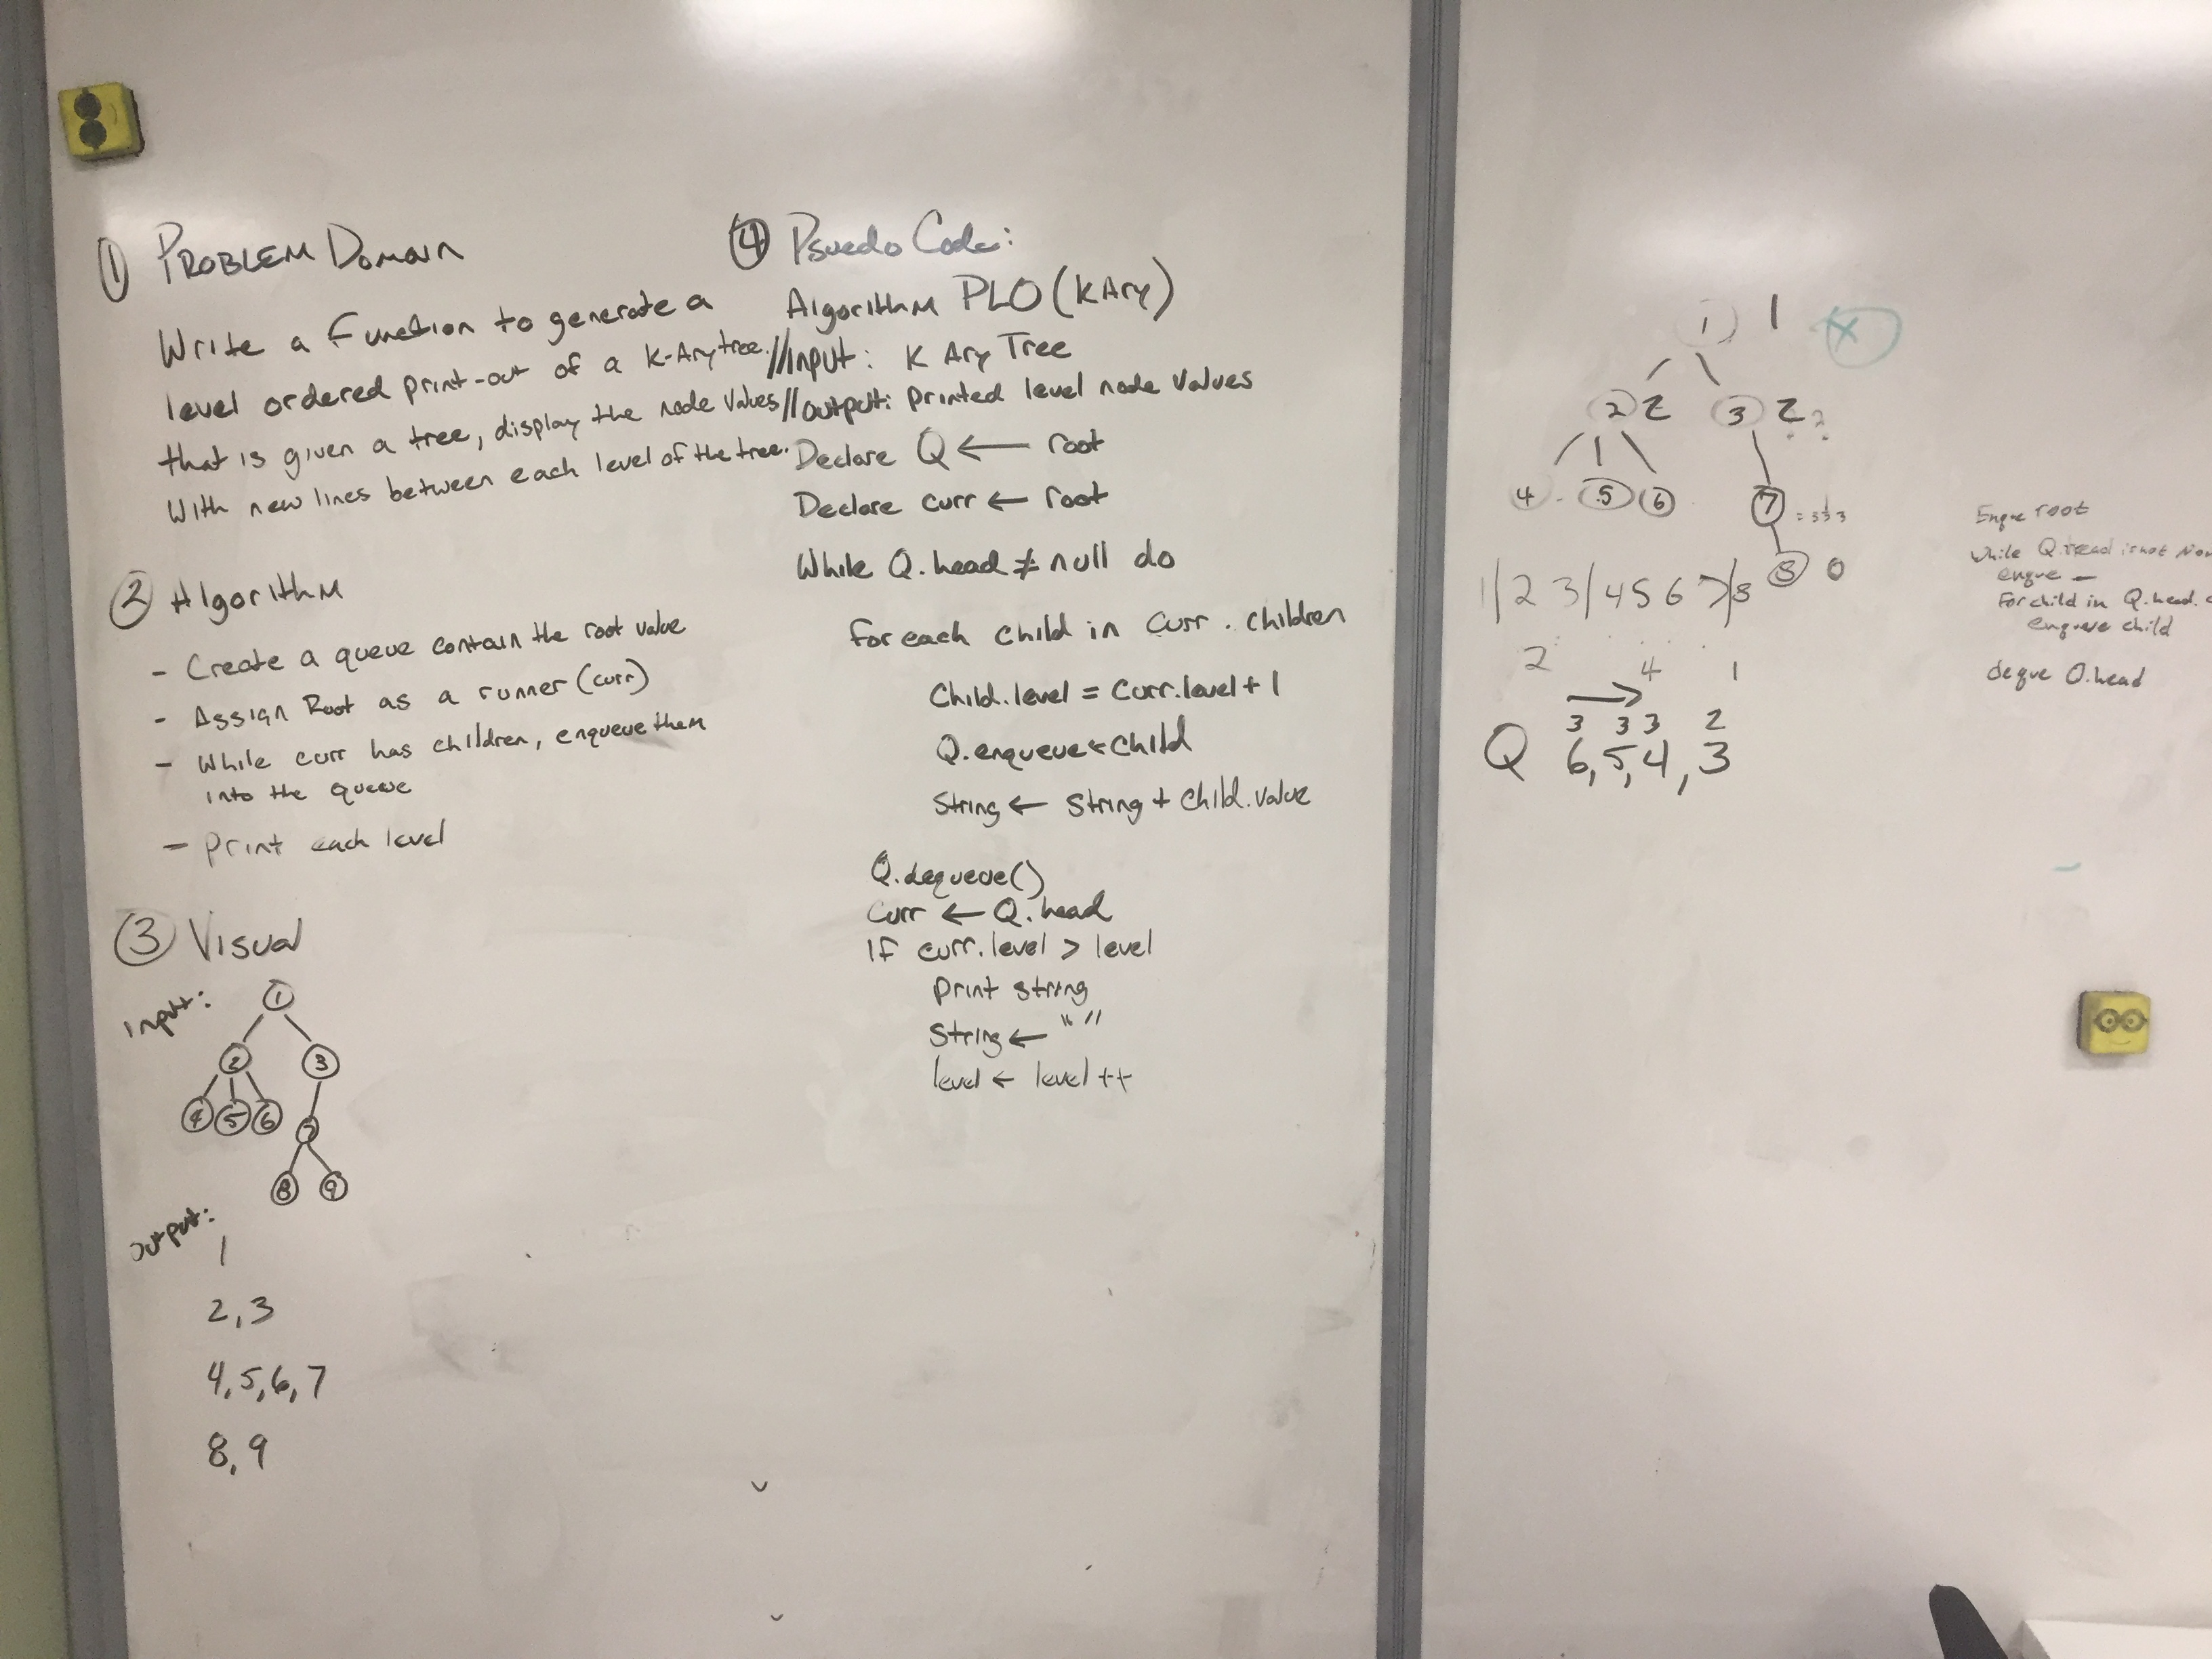 ① PROBLEM DOMAIN
Write a Function to generate a
level ordered print-out of a K-Ary tree.
that is given a tree, display the node values
With new lines between each level of the tree.
② Algorithm
- Create a queue contain the root value
- Assign Root as a runner (curr)
- While curr has children, enqueue them
into the queue
- Print each level
③ Visual
Input:
1
2 3
4 5 6 7
8 9
Output:
1
2,3
4,5,6,7
8,9
④ Psuedo Code:
Algorithm PLO (KAry)
//Input: K Ary Tree
//Output: Printed level node values
Declare Q ← root
Declare curr ← root
While Q.head ≠ null do
For each child in curr.children
Child.level = curr.level + 1
Q.enqueue ← child
String ← String + child.value
Q.dequeue()
Curr ← Q.head
If curr.level > level
Print string
String ← " "
level ← level ++
1 1 X
2 2 3 2
4 5 6 7
8 0
1/2 3/4 5 6 7/8
2 4 1
→
3 3 3 2
Q 6,5,4,3
Enque root
While Q.head is not
enque —
For child in Q.head.
enqueue child
deque Q.head